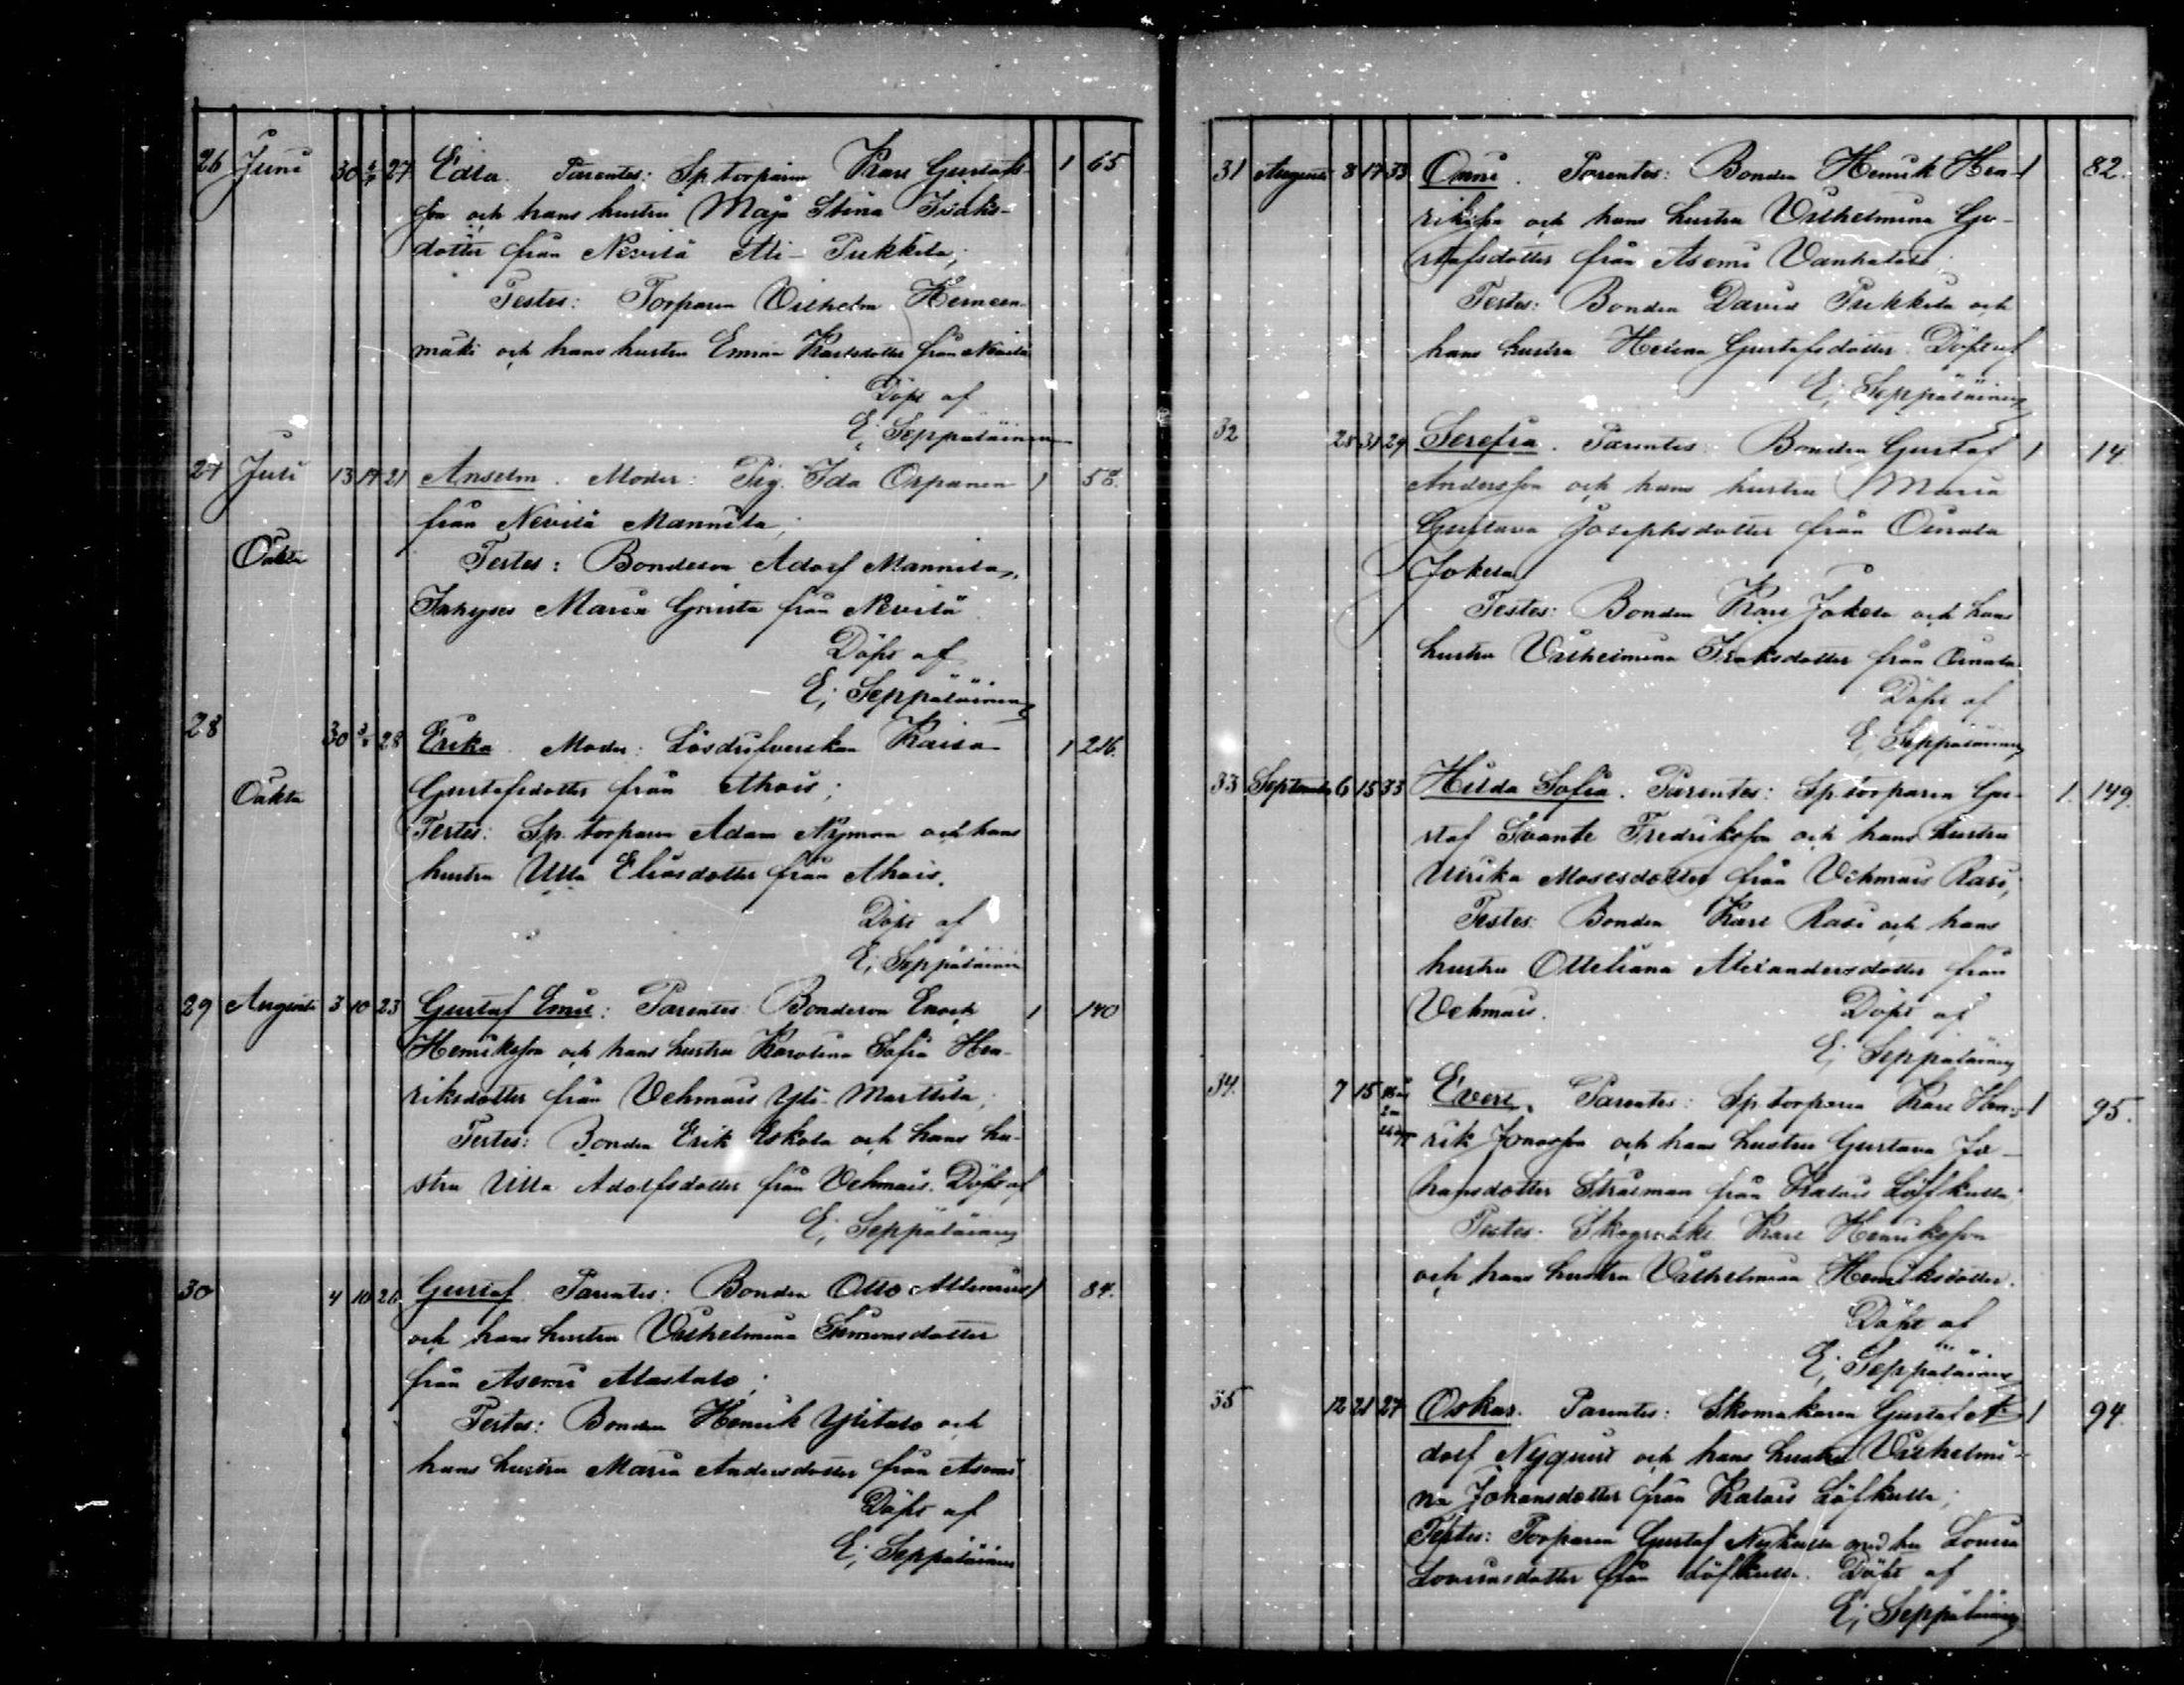 26 Juni 30 4/7 27 Edla. Parentes: Sp. torparen Karl Gustafs- 1 65
son och hans hustru Maja Stina Isaks-
dotter från Nevilä Ali-Pukkila;
Testes: Torparen Vilhelm Herneen-
mäki och hans hustru Emma Karlsdotter från Nevilä
Döpt af
E; Seppäläinen
27 Juli 13 14 21 Anselm. Moder: Pig. Ida Orpanen 1 58.
från Nevilä Mannila;
Oäkta Testes: Bondeson Adolf Mannila,
Inhyses Maria Greista från Nevilä
Döpt af
E; Seppäläinen
28 30 3/8 28 Erika. Moder: Lösdrifverskan Kaisa 1 216.
Oäkta Gustafsdotter från Ahois;
Testes: Sp. torparen Adam Nyman och hans
hustru Ulla Eliasdotter från Ahois.
Döpt af
E; Seppäläinen
29 Augusti 3 10 23 Gustaf Emil: Parentes: Bondeson Enock 1 140
Henriksson och hans hustru Karolina Sofia Hen-
riksdotter från Vehmais Yli-Marttila;
Testes: Bonden Erik Eskola och hans hu-
stru Ulla Adolfsdotter från Vehmais. Döpt af
E; Seppäläinen
30 4 10 26 Gustaf. Parentes: Bonden Otto 1 84.
och hans hustru Vilhelmina Simonsdotter
från Asemi Alastalo;
Testes: Bonden Henrik Ylitalo och
hans hustru Maria Andersdotter från Asemi
Döpt af
E; Seppäläinen
31 Augusti 8 17 33 Onni. Parentes: Bonden Henrik Hen- 1 82.
riksson och hans hustru Vilhelmina Gu-
stafsdotter från Asemi Vanhatalo;
Testes: Bonden David Pukkila och
hans hustru Helena Gustafsdotter. Döpt af
E; Seppäläinen
32 28 31 29 Serefia. Parentes: Bonden Gustaf 1 14.
Andersson och hans hustru Maria
Gustava Josephsdotter från Oinala
Jokela
Testes: Bonden Karl Jokela och hans
hustru Vilhelmina Isaksdotter från Oinala
Döpt af
E; Seppäläinen
33 September 6 15 33 Hilda Sofia. Parentes: Sp. torparen Gu- 1. 149.
staf Svante Fredriksson och hans hustru
Ulrika Mosesdotter från Vehmais Rasi;
Testes: Bonden Karl Rasi och hans
hustru Otteliana Alexandersdotter från
Vehmais. Döpt af
E; Seppäläinen
34. 7 15 Evert. Parentes: Sp. torparen Karl Hen- 1 95.
rik Jonasson och hans hustru Gustava Jo-
hansdotter Stråhlman från Kalais Löfkulla;
Testes: Karl Henriksson
och hans hustru Vilhelmina Henriksdotter.
Döpt af
E; Seppäläinen
35 12 21 27 Oskar. Parentes: Skomakaren Gustaf A- 1 94.
dolf Nyquist och hans hustru Vilhelmi-
na Johansdotter från Kalais Löfkulla;
Testes: Torparen Gustaf Nykulla med hu Lovisa
från Löfkulla. Döpt af
E; Seppäläinen